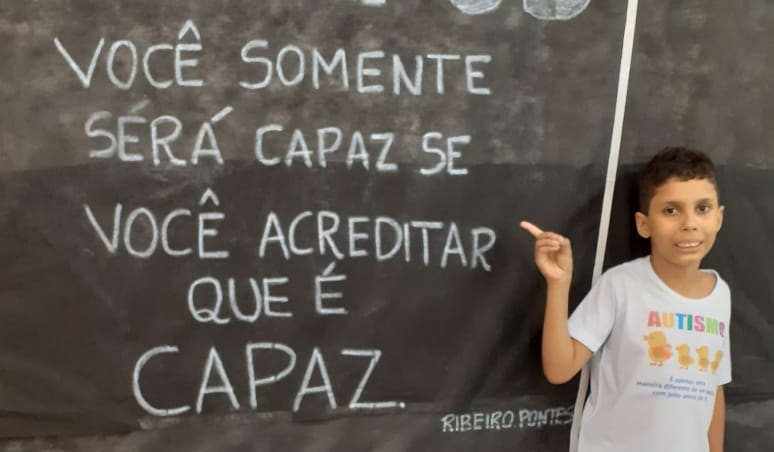 VOCÊ SOMENTE
SÉRÁ CAPAZ SE
VOCÊ ACREDITAR
QUE É
CAPAZ.
RIBEIRO.PONTES
AUTISMO
É apenas uma
maneira diferente de ver
com